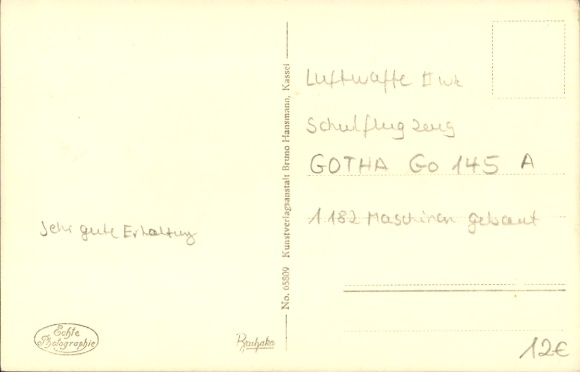 Luftwaffe II wk
Schulflugzeug
GOTHA Go 145 A
1182 Maschinen gebaut
Sehr gute Erhaltung
No. 65809 Kunstverlagsanstalt Bruno Hansmann, Kassel
Echte
Photographie
Bruhaka
12€